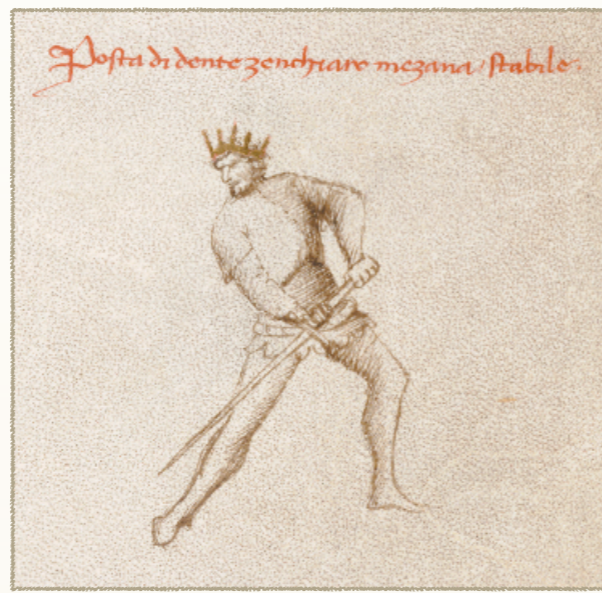 Posta di dente zenchiaro mezana / stabile.